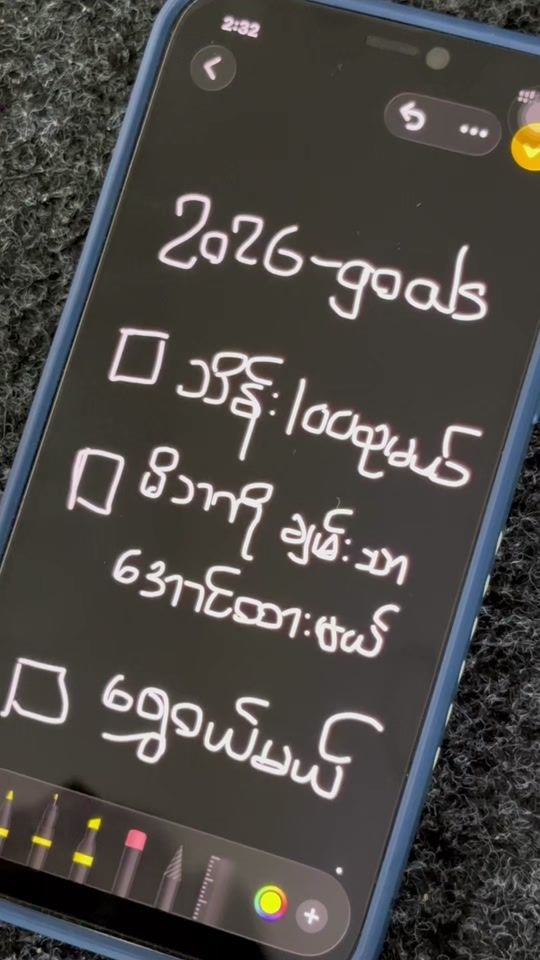 2:32
2026-goals
သိန်း100စုမယ်
မိဘကို ချမ်းသာ
အောင်ထားမယ်
ရွှေဝယ်မယ်